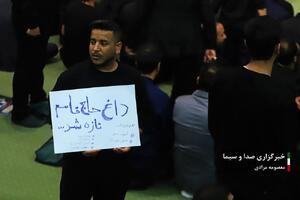 داغ حاج قاسم
تازه شد...
خبرگزاری صدا و سیما
معصومه مرادی